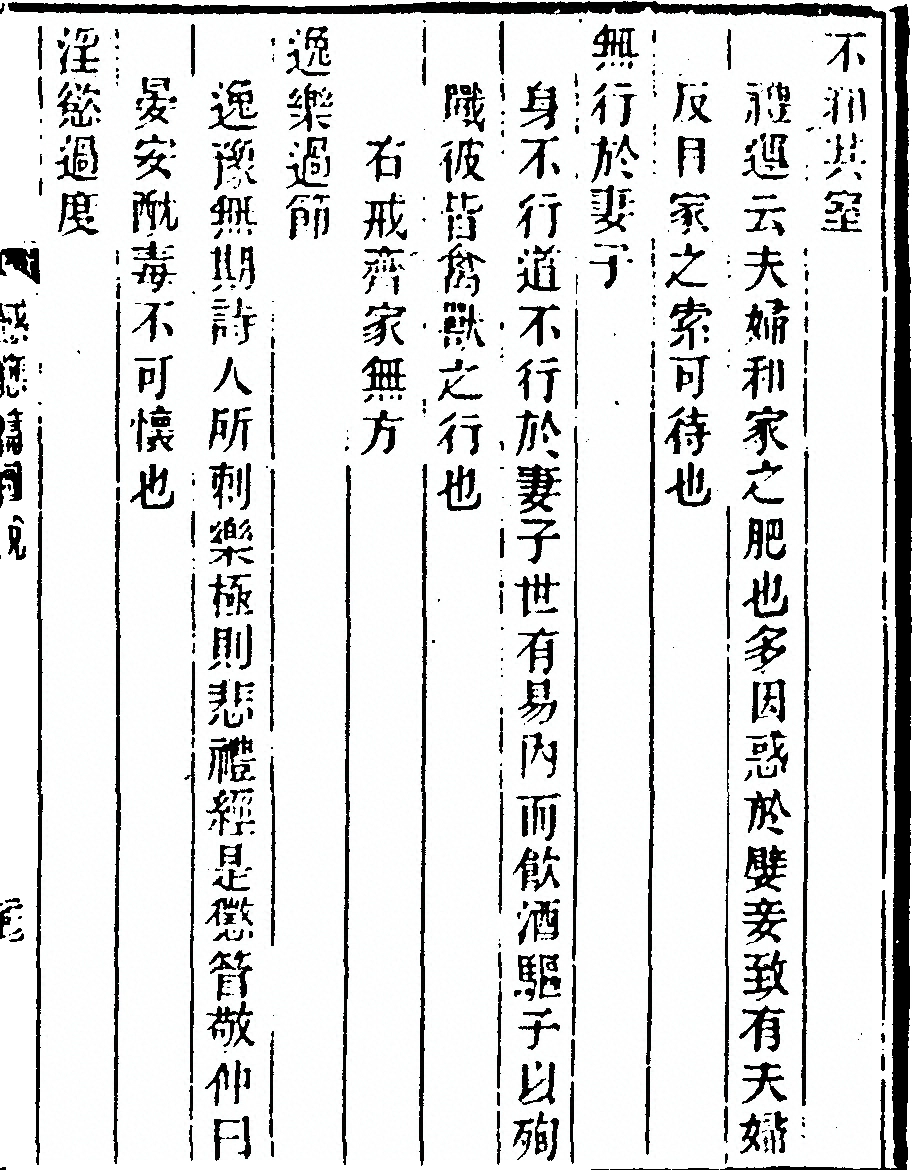 不和共室
禮運云夫婦和家之肥也多因惑於嬖妾致有夫婦
反目家之索可待也
無行於妻子
身不行道不行於妻子世有易內而飲酒驅子以殉
職彼皆禽獸之行也
右戒齊家無方
逸樂過節
逸豫無期詩人所刺樂極則悲禮經是懲管敬仲曰
晏安酖毒不可懷也
淫慾過度